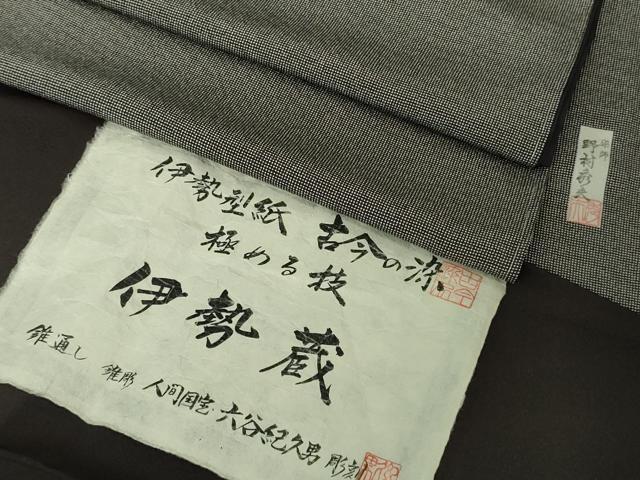 伊勢型紙 古今の染
極める技
伊勢蔵
錐通し
錐彫 人間国宝 六谷紀久男 彫刻
野村